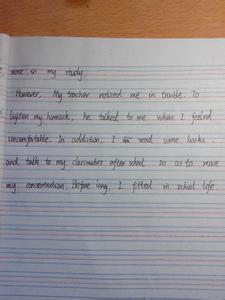 more on my study.
However, My teacher noticed me in trouble. To
lighten my homesick, he talked to me when I feeled
uncomfortable. In addiction, I read some books
and talk to my classmates after school so as to move
my concentration. Before long, I fitted in school life